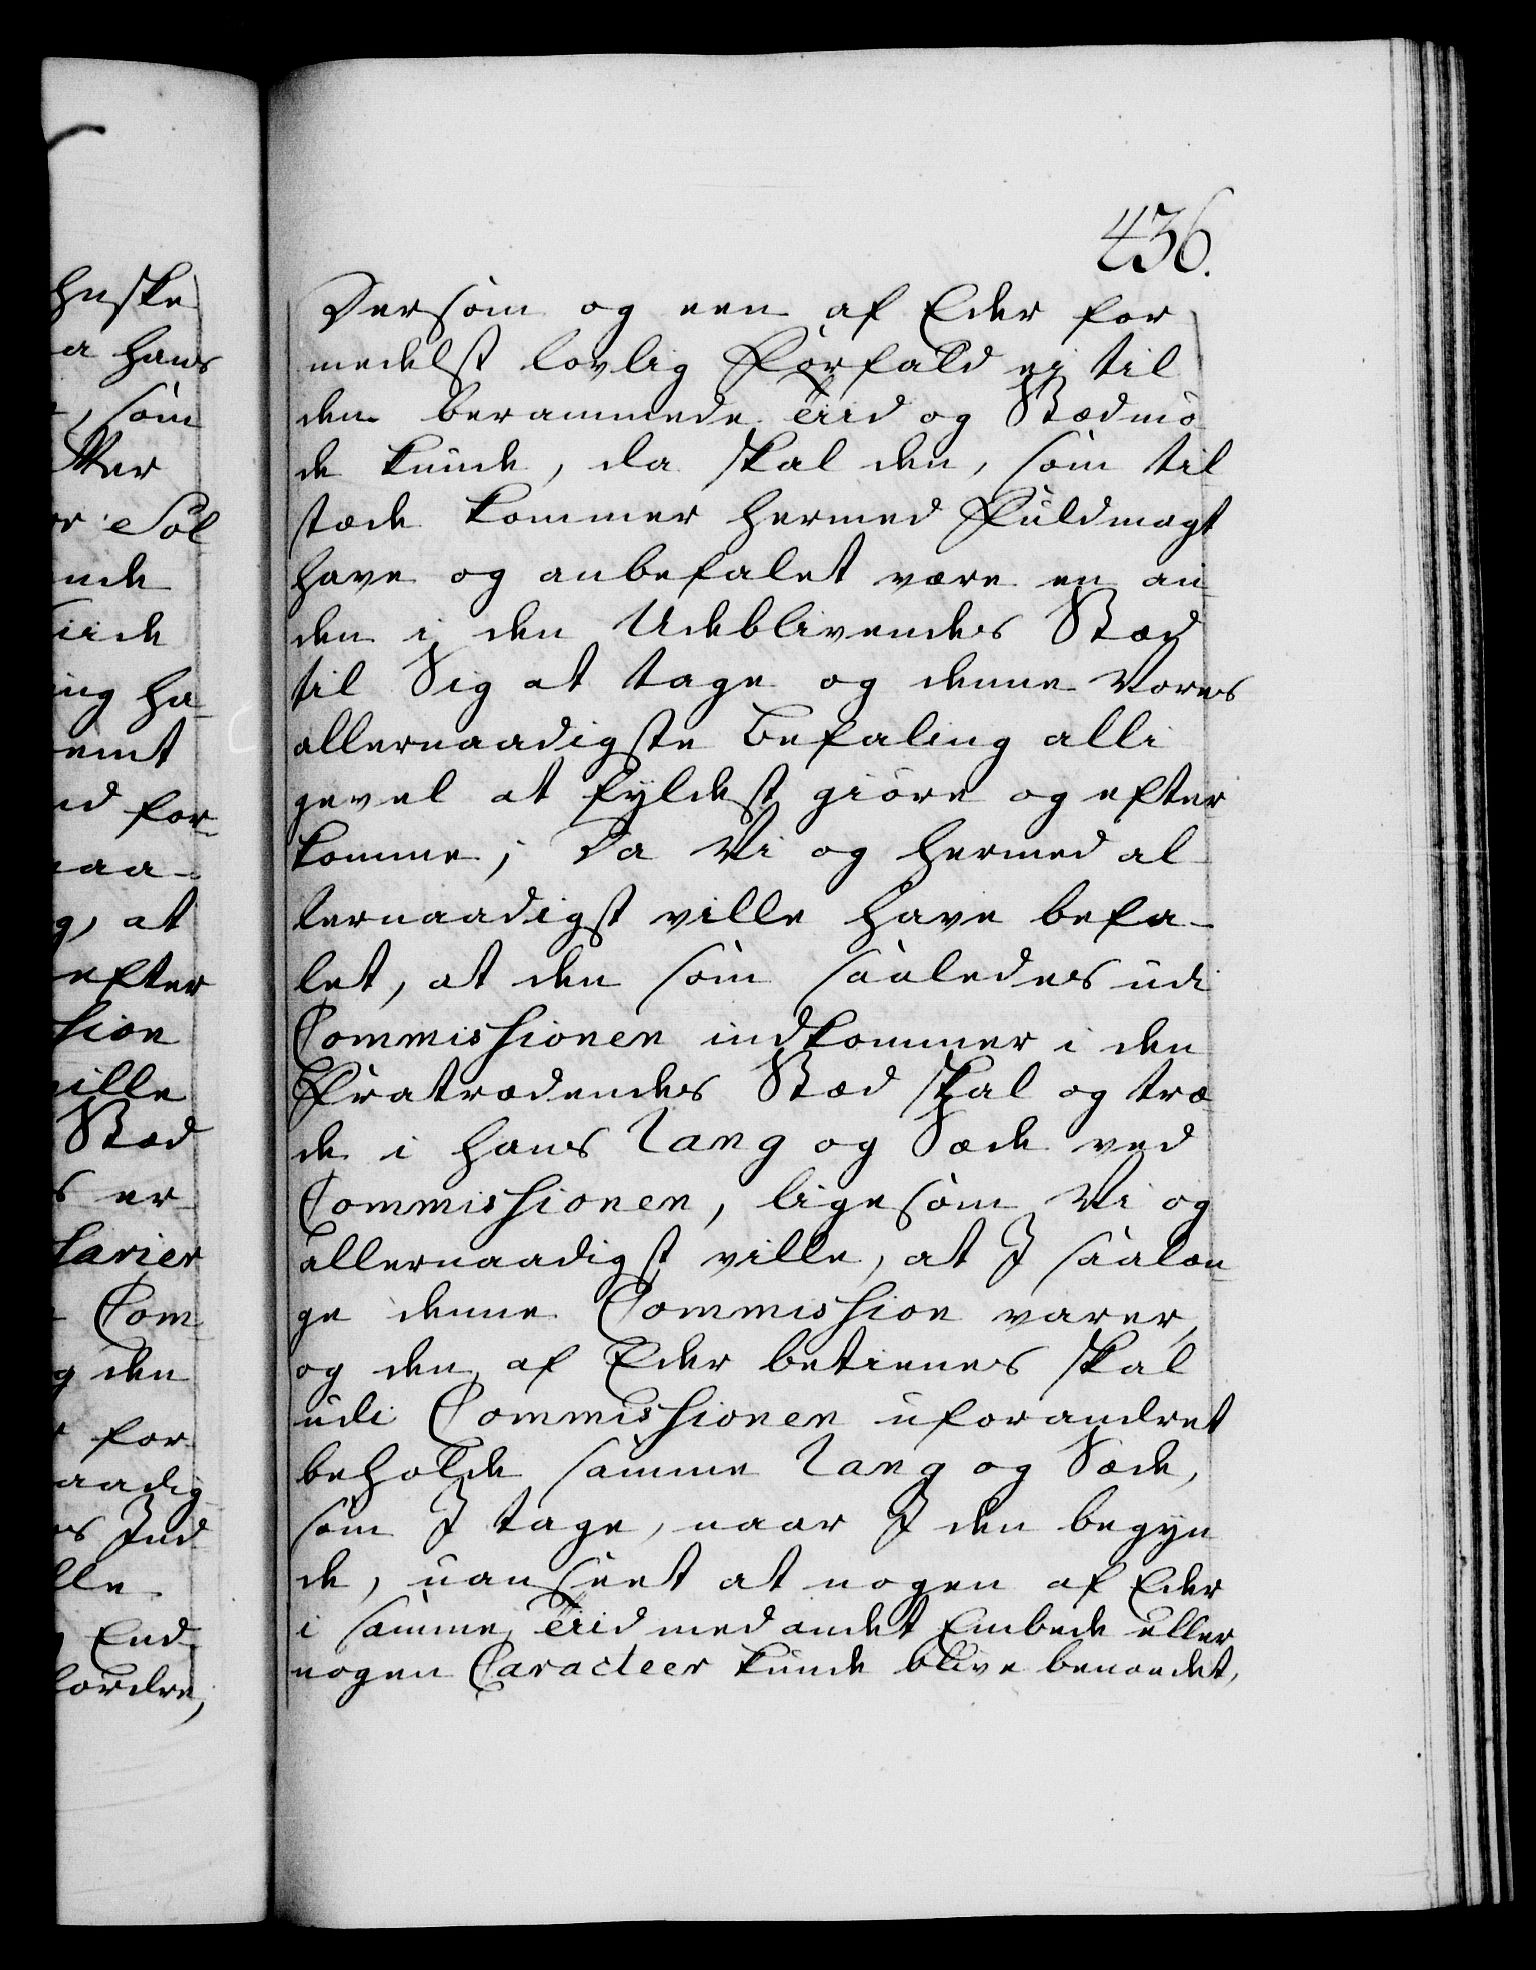 huske
a hans
, som
tter
or Søl
ende
Tiide
ing ha-
emt
ed for-
naa-
g, at
efter
sion
ville
Stæd
s er-
larier
Com
g den
for
aadig
es Ind
lle
End
fordre,
436.
Dersom og een af Eder for
medelst lovlig Forfald ej til
den berammede Tiid og Stæd mø
de kunde, da skal den, som til
stæde kommer hermed Fuldmagt
have og anbefalet være en an
den i den Udeblivendes Stæd
til Sig at tage og denne Vores
allernaadigste Befaling alli
gevel at fyldest giøre og efter
komme; Da Vi og hermed al-
lernaadigst ville have befa-
let, at den som saaledes udi
Commissionen indkommer i den
Fratrædendes Stæd skal og træ
de i hans Rang og Sæde ved
Commissionen, ligesom Vi og
allernaadigst ville, at I saalæn
ge denne Commission varer,
og den af Eder betienes skal
udi Commissionen uforandret
beholde samme Rang og Sæde,
som I tage, naar I den begyn
de, uanseet at nogen af Eder
i samme Tiid med andet Embede eller
nogen Caracteer kunde blive benaadet,